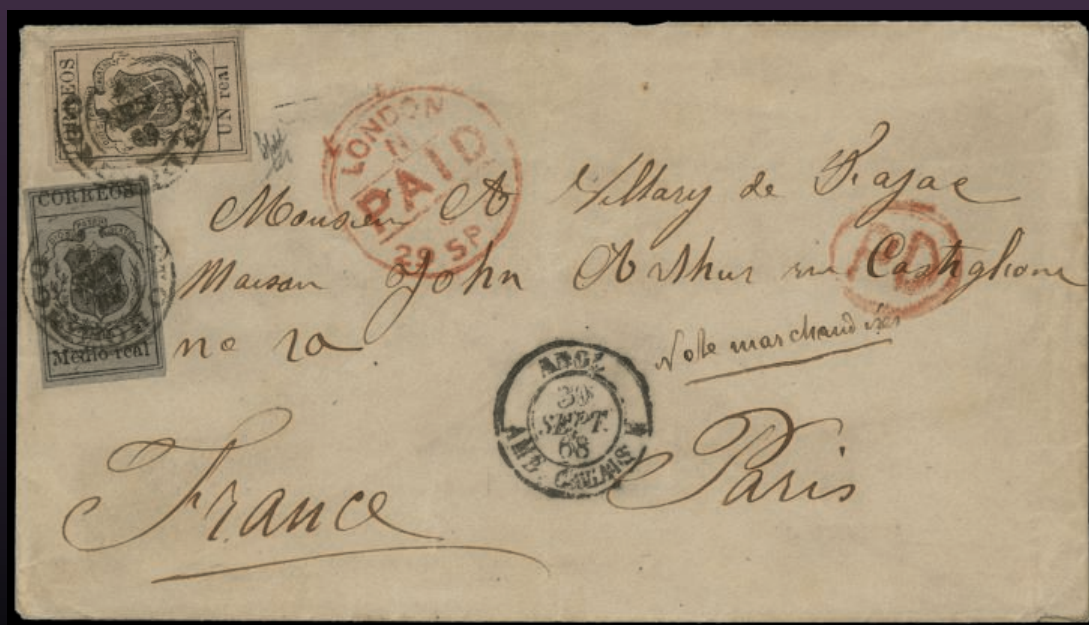 CORREOS
UN real
CORREOS
Medio real
LONDON
PAID
29 SP
PD
Monsieur A de
Maison John Arthur rue Castiglione
no 10
Note marchandises
ANGL.
30
SEPT.
68
AMB. CALAIS
France
Paris